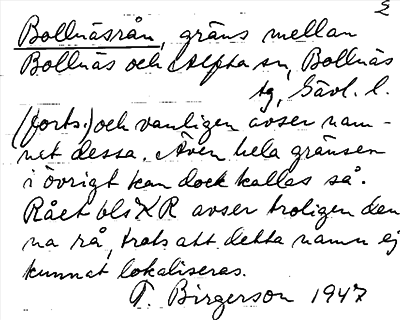 2
Bollnäsrån, gräns mellan
Bollnäs och Alfta sn, Bollnäs
tg, Gävl. l.
(forts.) och vanligen avser nam-
net dessa. Även hela gränsen
i övrigt kan dock kallas så.
Rået bl5 R avser troligen den
na rå, trots att detta namn ej
kunnat lokaliseras.
T. Birgerson 1947